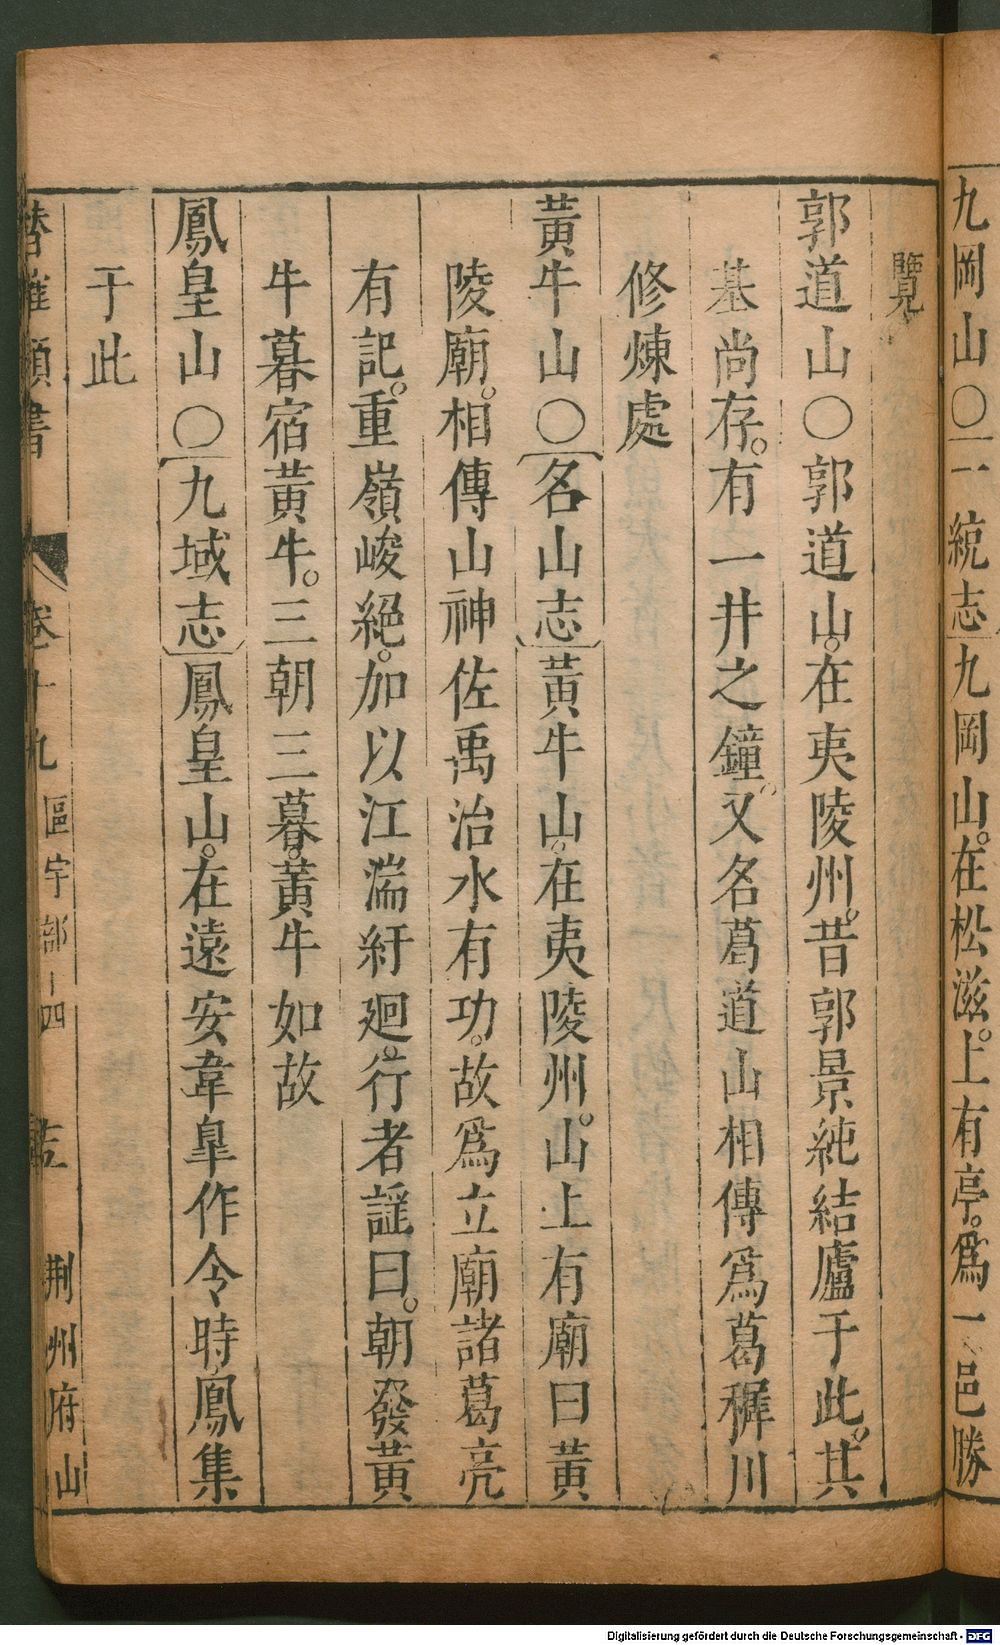 九岡山〇一統志九岡山。在松滋。上有亭。爲一邑勝
覽
郭道山〇郭道山。在夷陵州。昔郭景純結廬于此。其
基尚存。有一井之鐘。又名葛道山相傳爲葛稺川
修煉處
黃牛山〇名山志黃牛山。在夷陵州。山上有廟曰黃
陵廟。相傳山神佐禹治水有功。故爲立廟諸葛亮
有記。重嶺峻絕。加以江湍紆廻。行者謡曰。朝發黃
牛暮宿黃牛。三朝三暮。黃牛如故
鳳皇山〇九域志鳳皇山。在遠安韋臯作令時鳳集
于此
類書 卷十九 區宇部十四 荆州府山
Digitalisierung gefördert durch die Deutsche Forschungsgemeinschaft - DFG